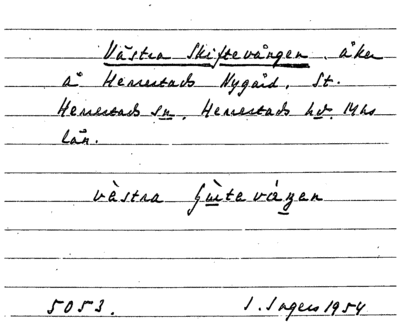 Västra Skiftevången, åker
å Herrestads Nygård, St.
Herrestads sn, Herrestads hd. Mhs
län.
västra
5053. I. Ingers 1954